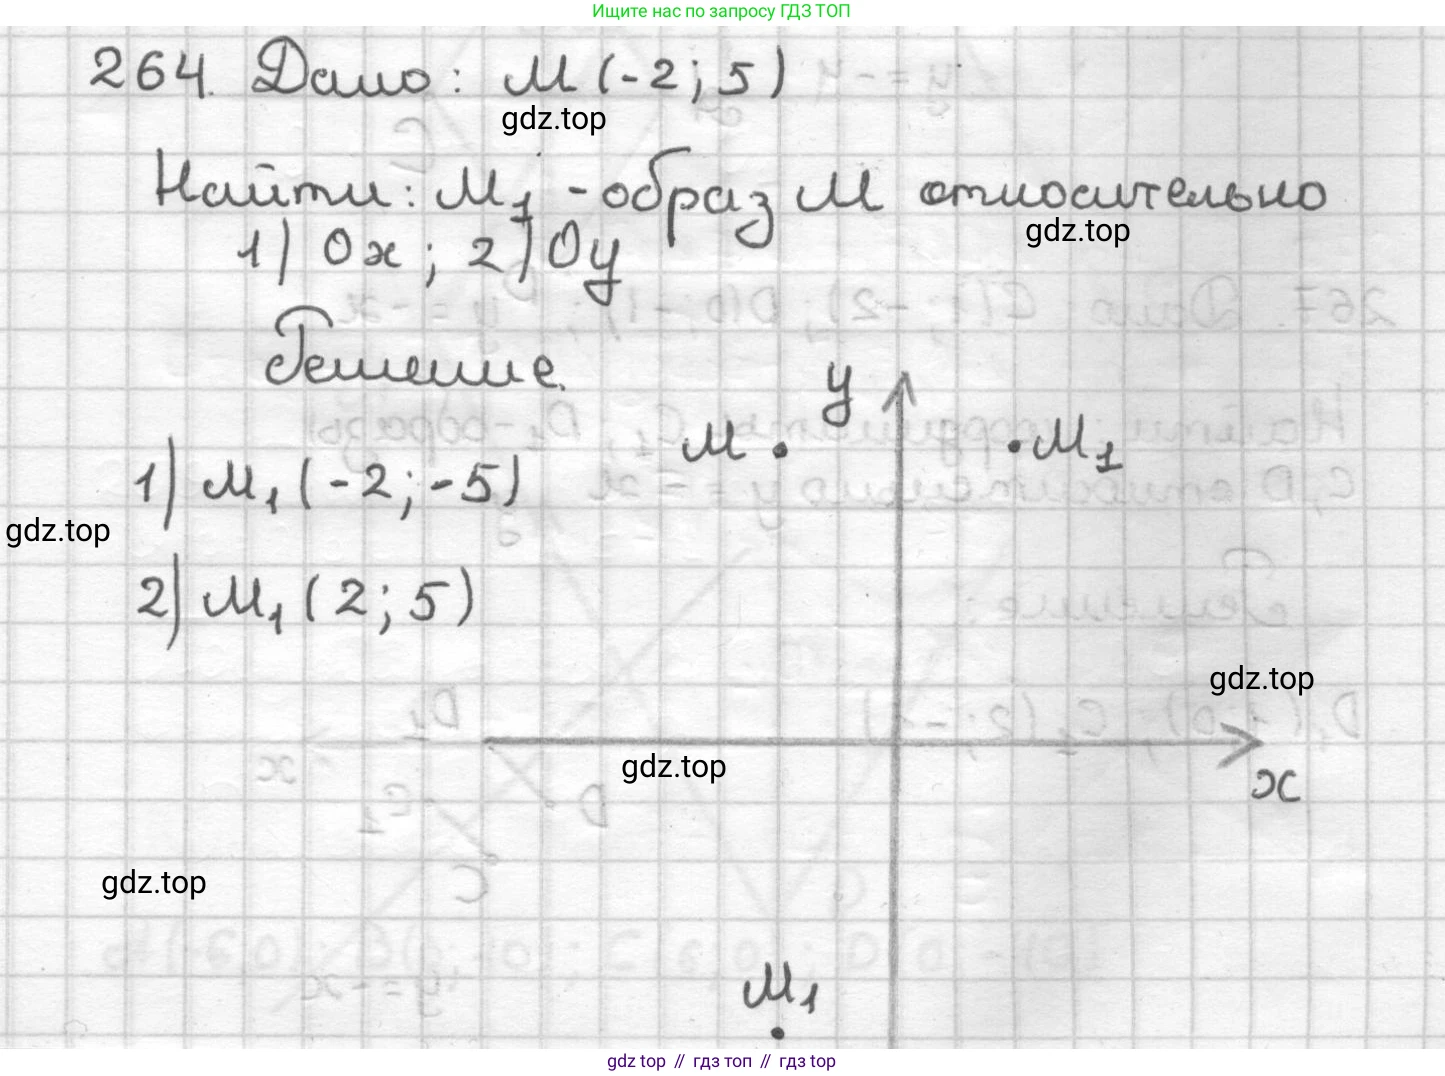 Ищите нас по запросу ГДЗ ТОП
264. Дано: М (-2; 5)
gdz.top
Найти: М₁ - образ М относительно
gdz.top
1) Ох; 2) Оу
Решение.
у
М
М₁
1) М₁ (-2; -5)
gdz.top
2) М₁ (2; 5)
gdz.top
gdz.top
х
gdz.top
М₁
gdz top // гдз топ // гдз top